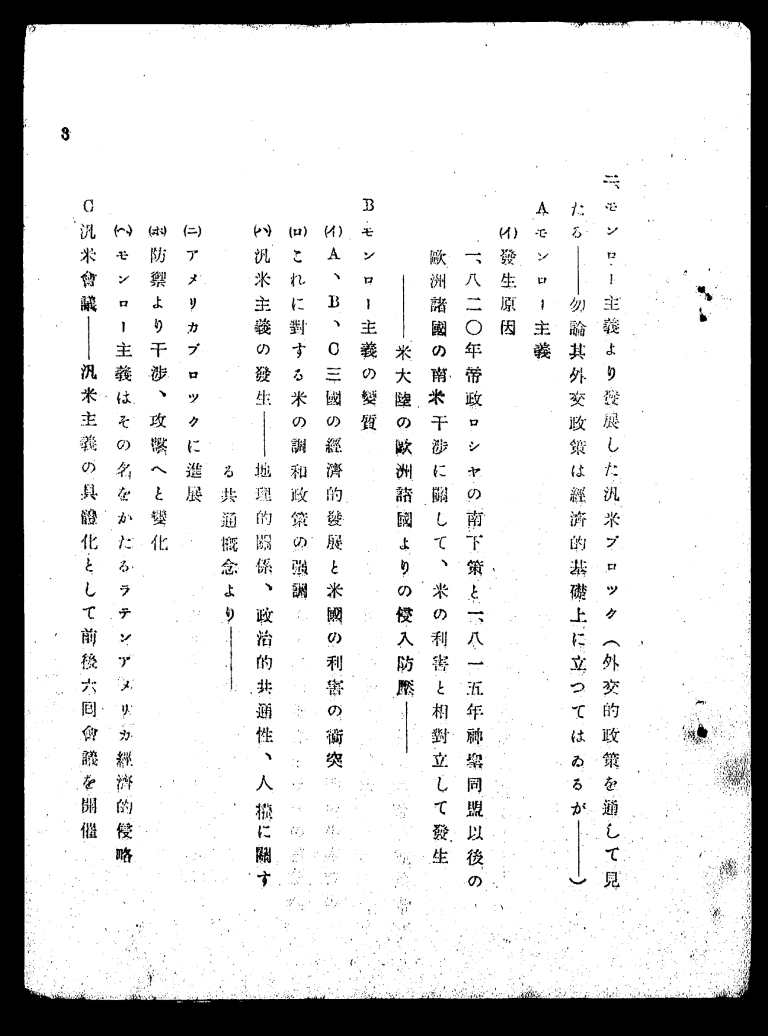 二、モンロー主義より發展した汎米ブロック（外交的政策を通して見
たる――勿論其外交政策は經濟的基礎上に立つてはゐるが――）
Aモンロー主義
(イ)發生原因
一、八二〇年帝政ロシヤの南下策と一、八一五年神聖同盟以後の
歐洲諸國の南米干渉に關して、米の利害と相對立して發生
――米大陸の歐洲諸國よりの侵入防壓――
Bモンロー主義の變質
(イ)A、B、C三國の經濟的發展と米國の利害の衝突
(ロ)これに對する米の調和政策の强調
(ハ)汎米主義の發生――地理的關係、政治的共通性、人權に關す
る共通概念より――
(ニ)アメリカブロックに進展
(ホ)防禦より干渉、攻擊へと變化
(ヘ)モンロー主義はその名をかたるラテンアメリカ經濟的侵略
C汎米會議――汎米主義の具體化として前後六回會議を開催
3